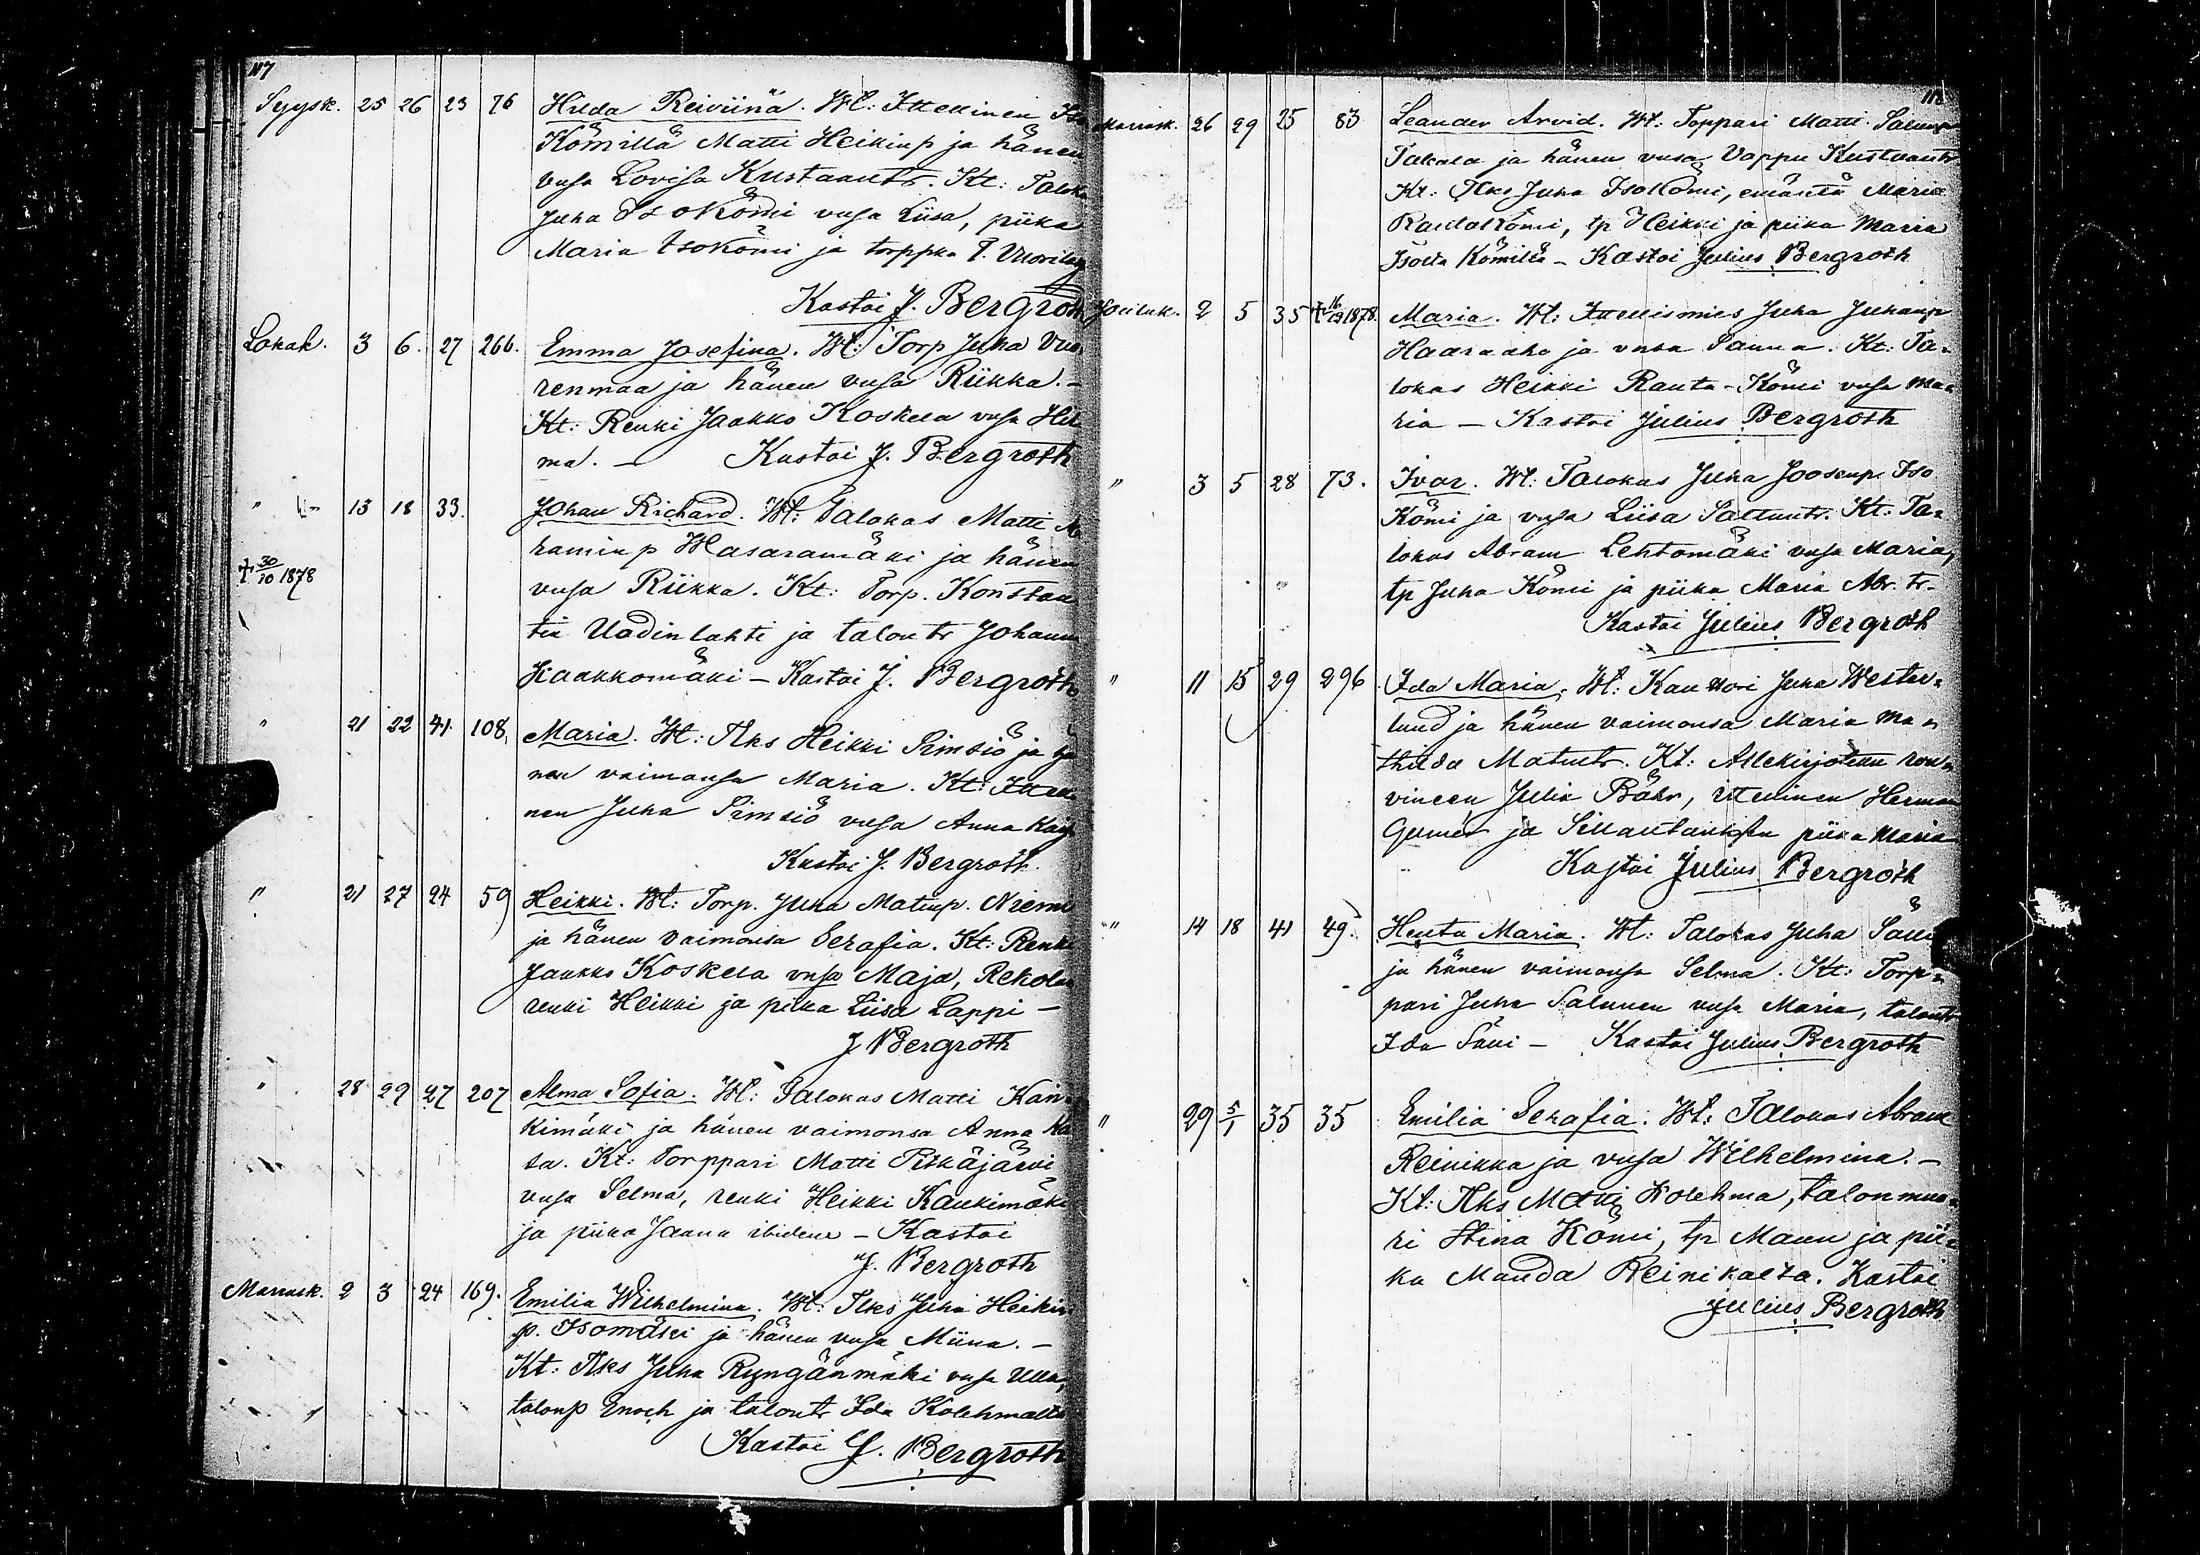 117
Syysk. 25 26 23 76 Hilda Reiviinä. Wt: Itellinen Iso
Kömillä Matti Heikinp ja hänen
vusa Lovisa Kustaantr. Kt: Talok
Juha Isokömi vusa Liisa, piika
Maria Isokömi ja torppka
Kastoi J. Bergroth
Lokak. 3 6. 27 266. Emma Josefina. Wt: Torp Juha Vuo
renmaa ja hänen vusa Riikka. -
Kt: Renki Jaakko Koskela vusa Hil
ma. - Kastoi J. Bergroth
" 13 18 33. Johan Richard. Wt: Talokas Matti
haminp Wasaramäki ja hänen
† 30/10 1878
vusa Riikka. Kt: Torp. Konstan
tin Uadinlahti ja talontr Johanna
Haakkomäki - Kastoi J. Bergroth
" 21 22 41 108. Maria. Wt: Tlks Heikki Simsiö ja hä
nen vaimonsa Maria. Kt: Itelli
nen Juha Simsiö vusa Anna Kaisa
Kastoi J. Bergroth
" 21 27 24 59 Heikki. Wt: Torp. Juha Matinp. Niemi
ja hänen vaimonsa Serafia. Kt: Renki
Jaakko Koskela vusa Maja, Rekolan
renki Heikki ja piika Liisa Lappi -
J Bergroth
" 28 29 27 207 Alma Sofia. Wt: Talokas Matti Kan-
kimäki ja hänen vaimonsa Anna Kai
sa. Kt: Torppari Matti Pitkäjärvi
vusa Selma, renki Heikki Kankimäki
ja piika Jaana ibidem - Kastoi
J. Bergroth
Marrask. 2 3 24 169. Emilia Wilhelmina. Wt: Tlks Juha Heikin
p. Isomäki ja hänen vusa Miina. -
Kt: Tlks Juha Ryngänmäki vusa Ulla,
talonp Enoch ja talontr Ida Kolehmalta
Kastoi J. Bergroth
118
Marrask. 26 29 25 83 Leander Arvid. Wt: Toppari Matti Salomp
Takala ja hänen vusa Vappu Kustaantr
Kt: Tlks Juha Isokömi, emäntä Maria
Rantakömi, tp Heikki ja piika Maria
Isolta Kömiltä - Kastoi Julius Bergroth
Jouluk. 2 5 35 † 16/12 1878. Maria. Wt: Itellismies Juha Juhanp
Haaraaho ja vusa Sanna. Kt: Ta-
lokas Heikki Ranta-Kömi vusa Ma-
ria - Kastoi Julius Bergroth
" 3 5 28 73. Ivar. Wt: Talokas Juha Joosenp Iso
Kömi ja vusa Liisa Salluntr. Kt: Ta-
lokas Abram Lehtomäki vusa Maria,
tp Juha Kömi ja piika Maria Abr. tr.
Kastoi Julius Bergroth
" 11 15 29 296 Ida Maria. Wt: Kanttori Juha Wester-
lund ja hänen vaimonsa Maria Ma-
thilda Matintr. Kt: Allekirjotettu rou-
vineen Julia Bähr, itellinen Herman
ja piika Maria
Kastoi Julius Bergroth
" 14 18 41 49. Henta Maria. Wt: Talokas Juha
ja hänen vaimonsa Selma. Kt: Torp-
pari Juha Salunen vusa Maria, talontr
Ida Säui - Kastoi Julius Bergroth
" 29 5/1 35 35 Emilia Serafia. Wt: Talokas Abram
Reinikka ja vusa Wilhelmina. -
Kt: Tlks Matti Kolehma, talonmuo-
ri Stina Kömi, tp Manu ja pii-
ka Manda Reinikalta. Kastoi
Julius Bergroth